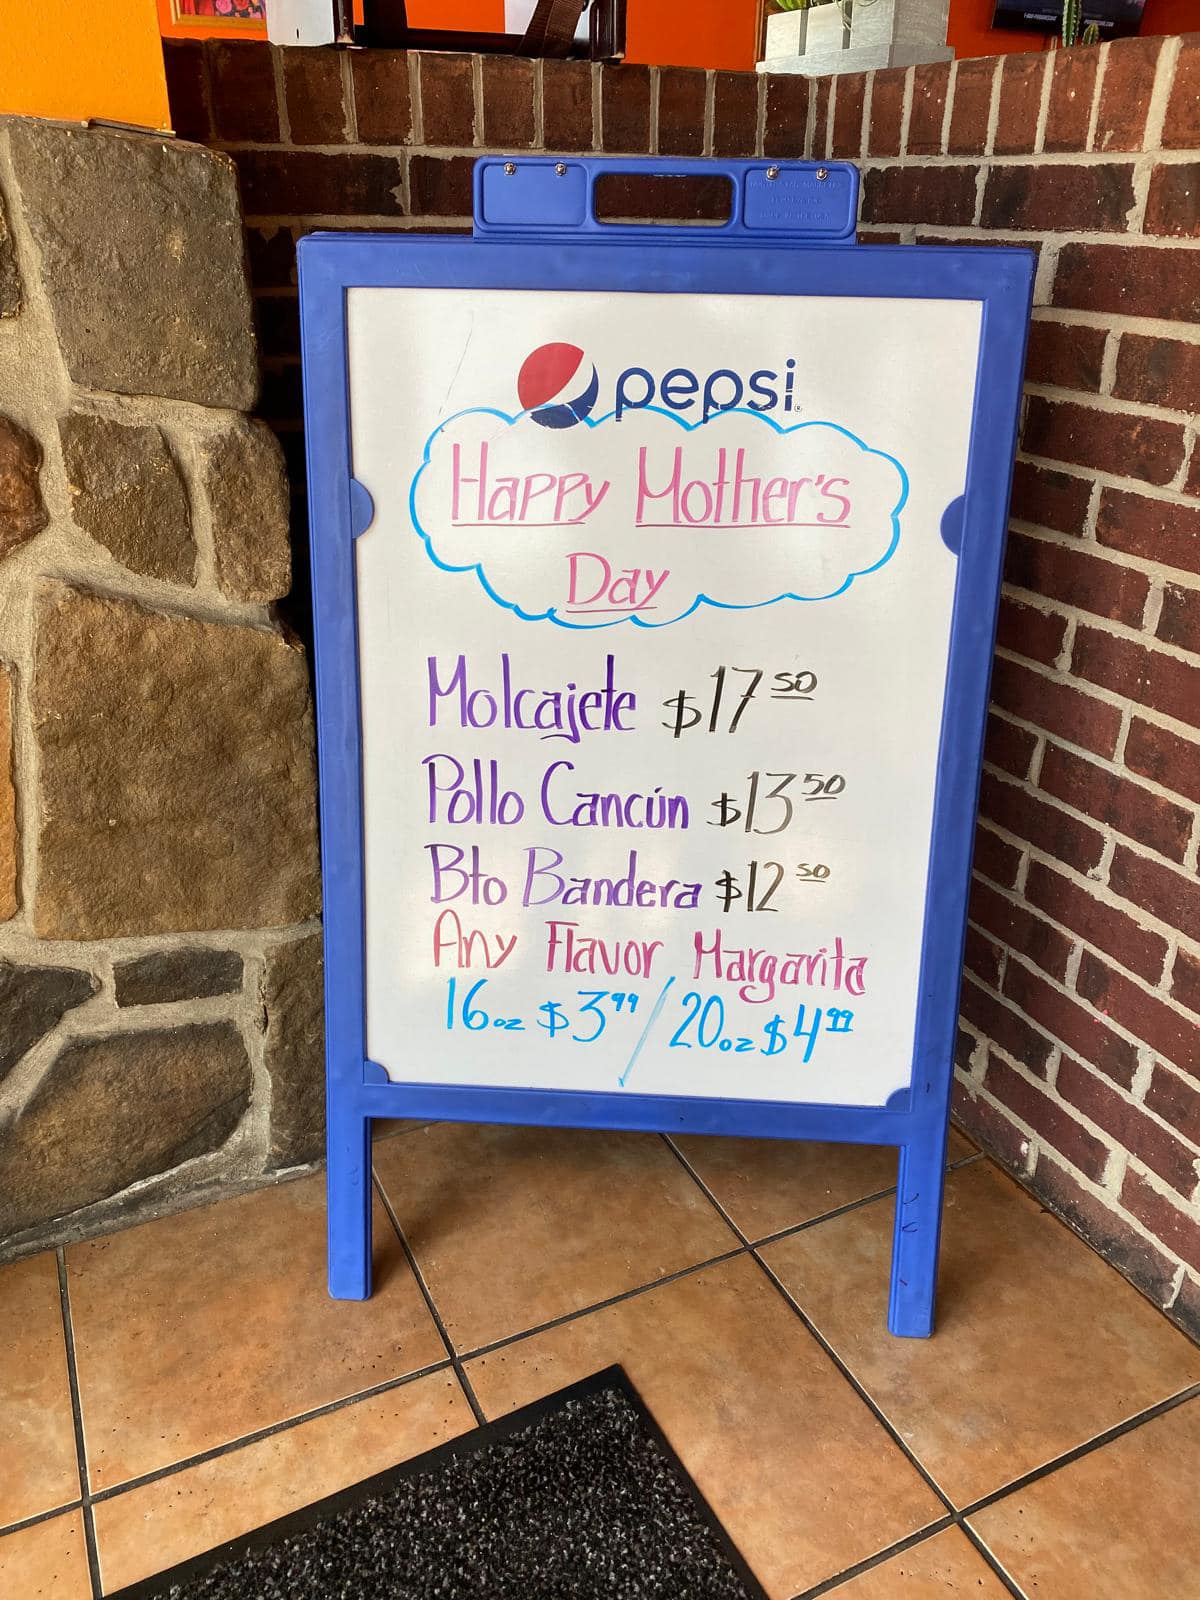 pepsi
Happy Mother's
Day
Molcajete $17 50
Pollo Cancún $13 50
Bto Bandera $12 50
Any Flavor Margarita
16oz $3 99 / 20oz $4 99